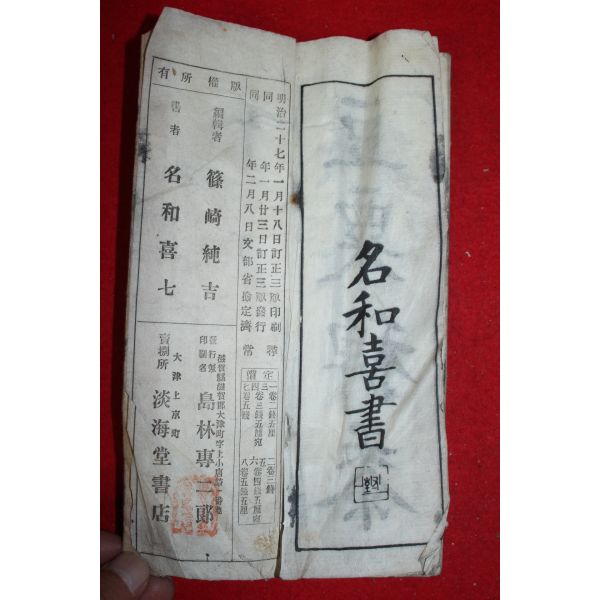 名和喜書
明治二十七年一月十八日訂正三版印刷
同年一月廿三日訂正三版發行
同年二月八日文部省檢定濟
尋常
定價
一卷二錢五厘
三卷三錢五厘宛
四
七卷五錢
二卷三錢
五卷四錢五厘宛
六
八卷五錢五厘
版權所有
編輯者 篠崎純吉
書者 名和喜七
滋賀縣滋賀郡大津町字上小唐崎
發行兼印刷者 島林專二郎
大津上京町
賣捌所 淡海堂書店